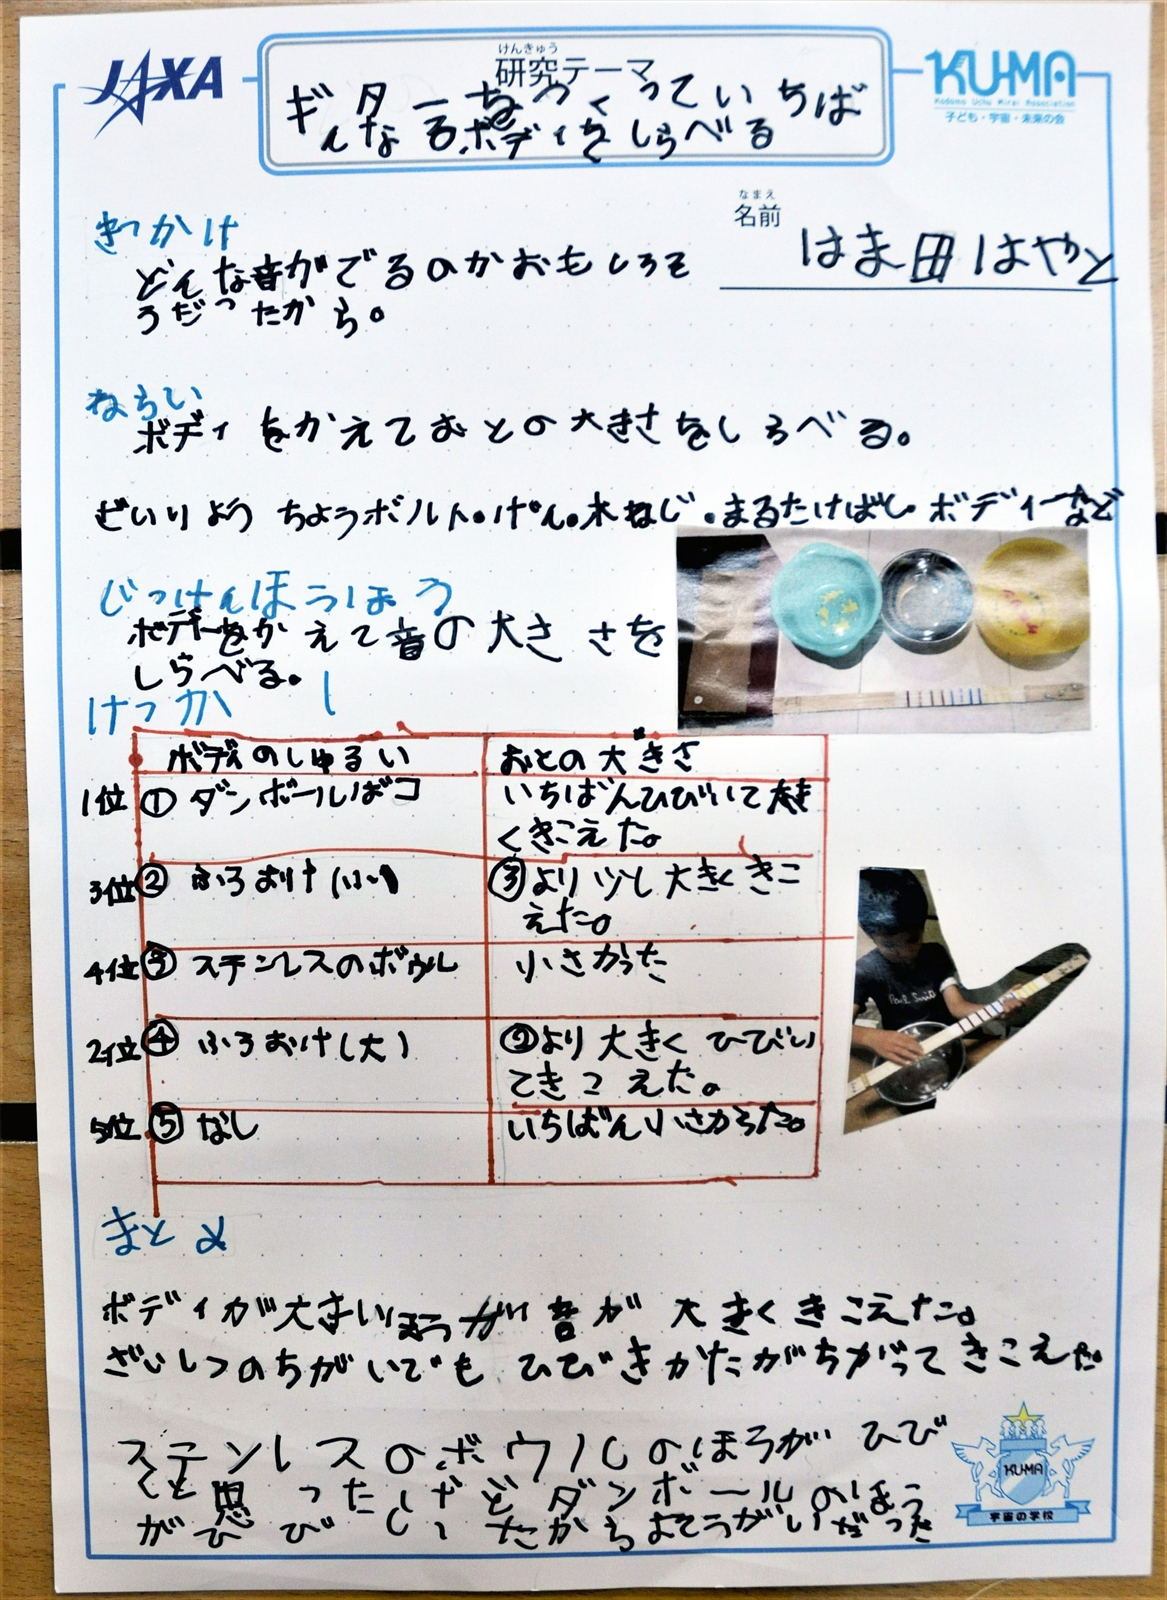 JAXA
けんきゅう
研究テーマ
KU-MA
Kodomo Uchu Mirai Association
子ども・宇宙・未来の会
ギターをつくっていちば
んなるボディをしらべる
なまえ
名前
はま田はやと
きっかけ
どんな音がでるのかおもしろそ
うだったから。
ねらい
ボディをかえておとの大きさをしらべる。
ざいりよう ちょうボルト。げん。木ねじ。まるたけばし。ボディーなど
じっけんほうほう
ボディーをかえて音の大きさを
しらべる。
けっか
ボディのしゅるい おとの大きさ
1位 ① ダンボールばコ いちばんひびいて大き
くきこえた。
3位 ② ふろおけ ③より少し大きくきこ
えた。
4位 ③ ステンレスのボウル 小さかった
2位 ④ ふろおけ(大) ②より大きくひびい
てきこえた。
5位 ⑤ なし いちばん小さかった。
Paul Smith
まとめ
ボディが大きいほうが音が大きくきこえた。
ざいしつのちがいでもひびきかたがちがってきこえた。
ステンレスのボウルのほうがひび
くと思ったけどダンボールのほう
がひびいたからよそうがいだった
KU-MA
宇宙の学校